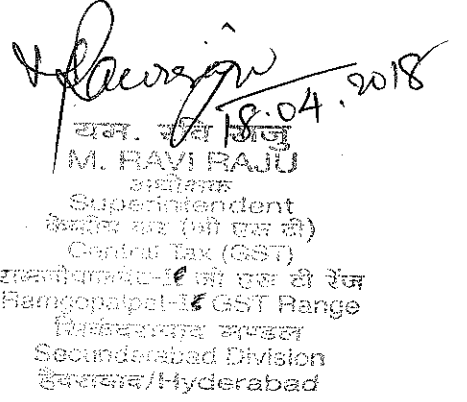 18.04.2018
यम. रवि राजु
M. RAVI RAJU
अधीक्षक
Superintendent
केन्द्रीय कर (जी एस टी)
Central Tax (GST)
जी एस टी रेंज
Ramgopalpet- GST Range
सिकंदराबाद मण्डल
Secunderabad Division
हैदराबाद/Hyderabad